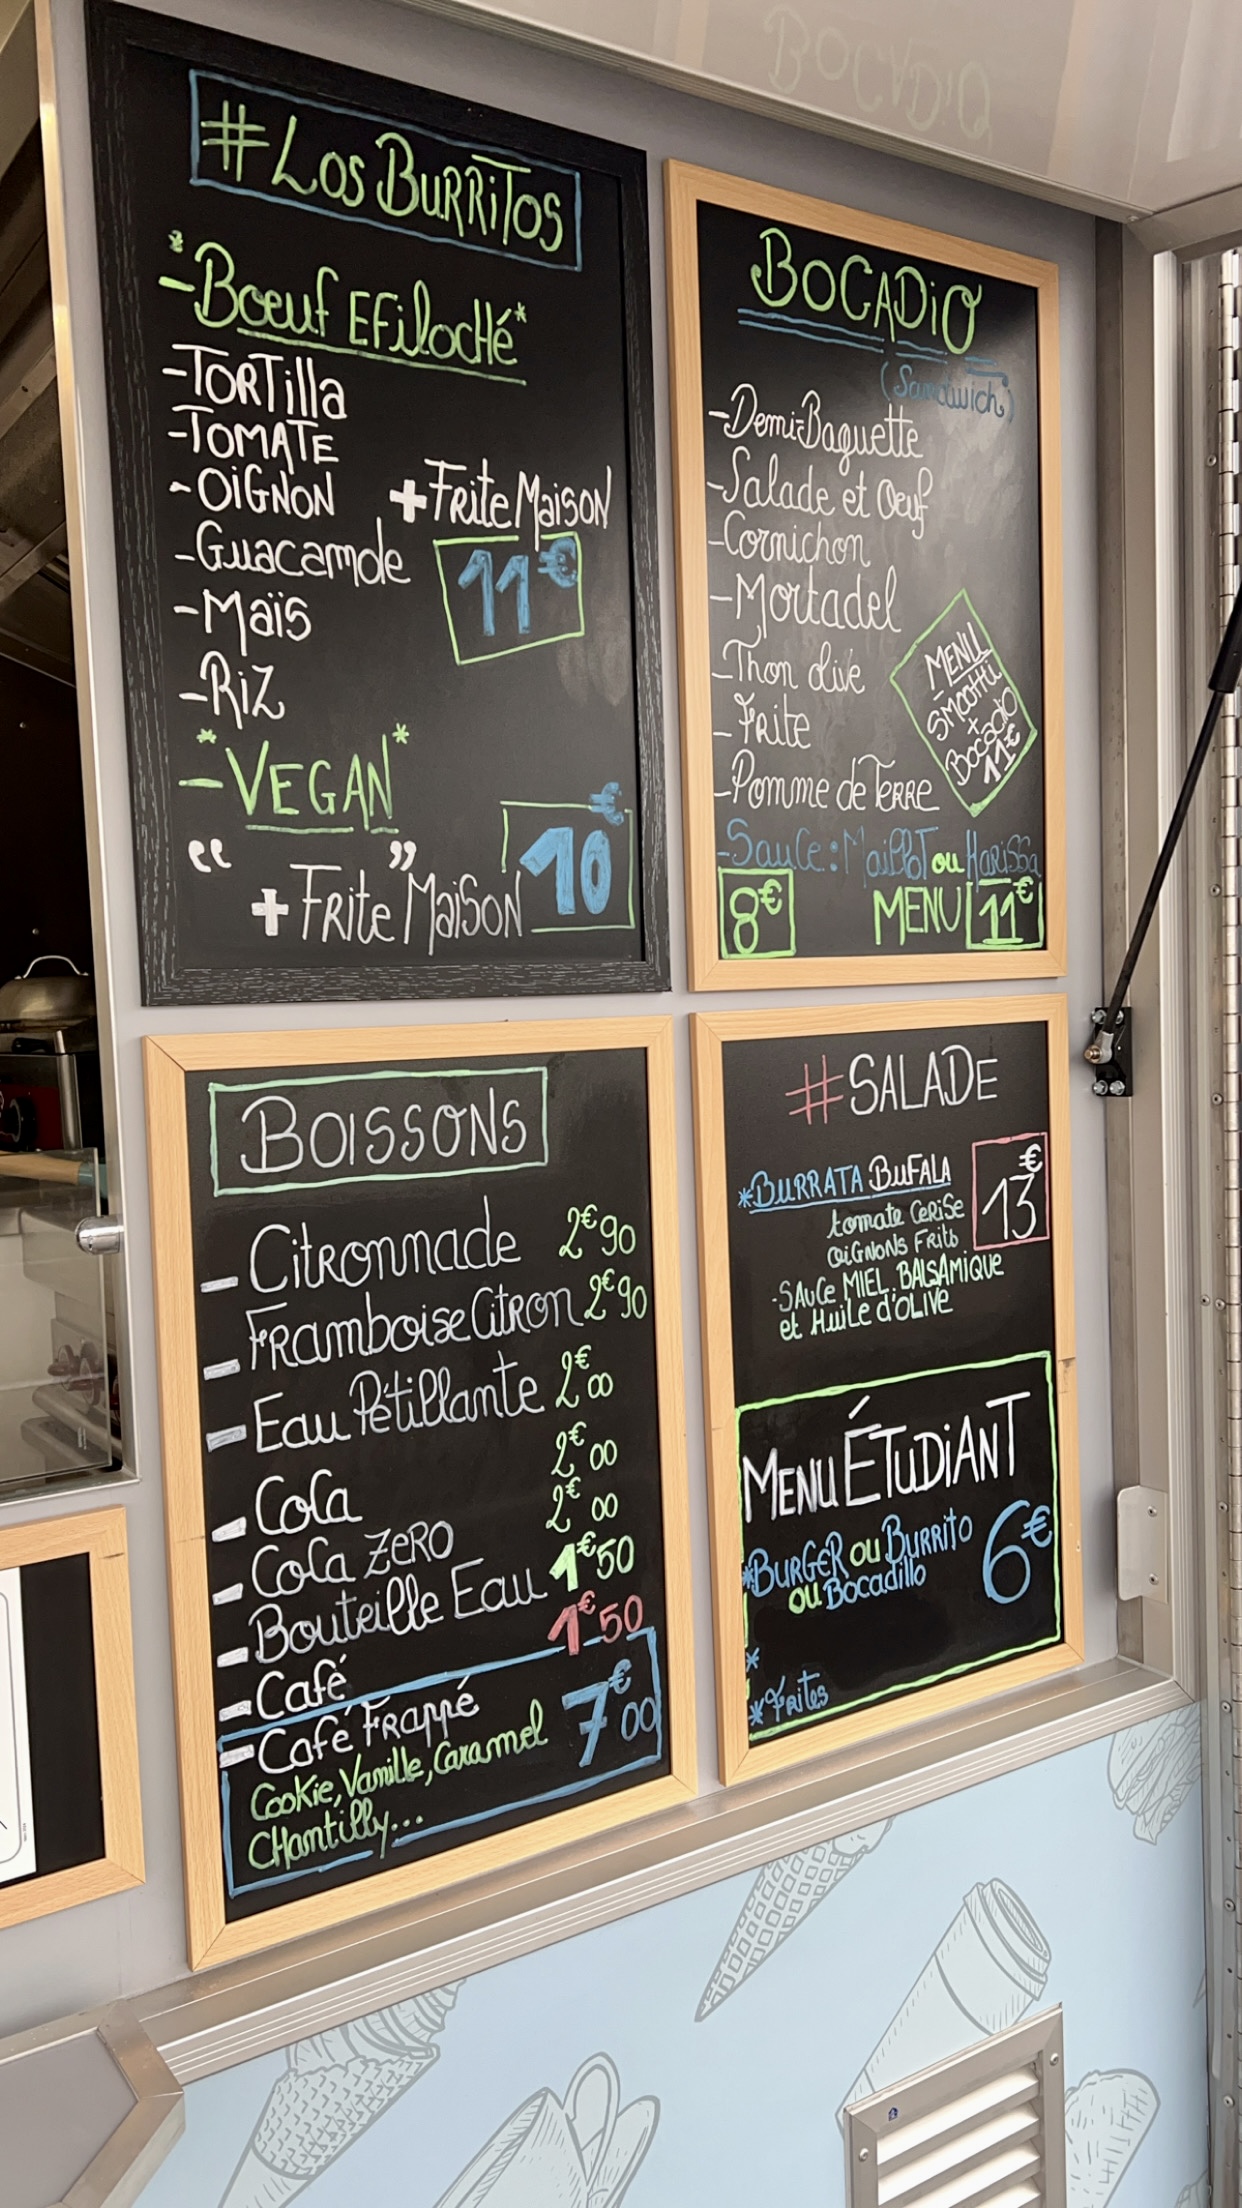 #Los Burritos
*
-Bœuf Efiloché*
-Tortilla
-Tomate
-Oignon
+ Frite Maison
-Guacamole
11€
-Maïs
-Riz
* *
-Vegan
“ ”
+ Frite Maison
10€
Bocadio
(Sandwich)
-Demi-Baguette
-Salade et Oeuf
-Cornichon
-Mortadel
-Thon olive
-Frite
-Pomme de Terre
Menu
Smoothi
+
Bocadio
11€
-Sauce: Maillot ou Harissa
8€
Menu 11€
Boissons
- Citronnade 2€90
- Framboise Citron 2€90
- Eau Pétillante 2€00
- Cola 2€00
- Cola Zero 2€00
- Bouteille Eau 1€50
- Café 1€50
- Café Frappé 7€00
Cookie, Vanille, Caramel
Chantilly...
#Salade
*Burrata Bufala
13€
tomate cerise
oignons frits
-Sauce miel, balsamique
et huile d'olive
Menu Étudiant
*Burger ou Burrito
ou Bocadillo
6€
*
*Frites